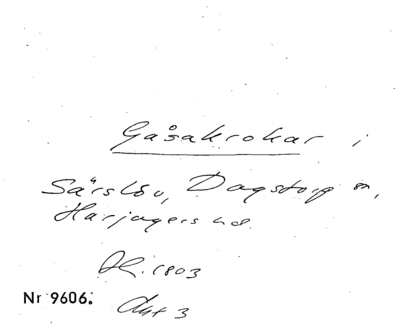 Gåsakrokar i
Särslöv, Dagstorp sn,
Harjagers hd.
1803
Nr 9606.
Akt 3